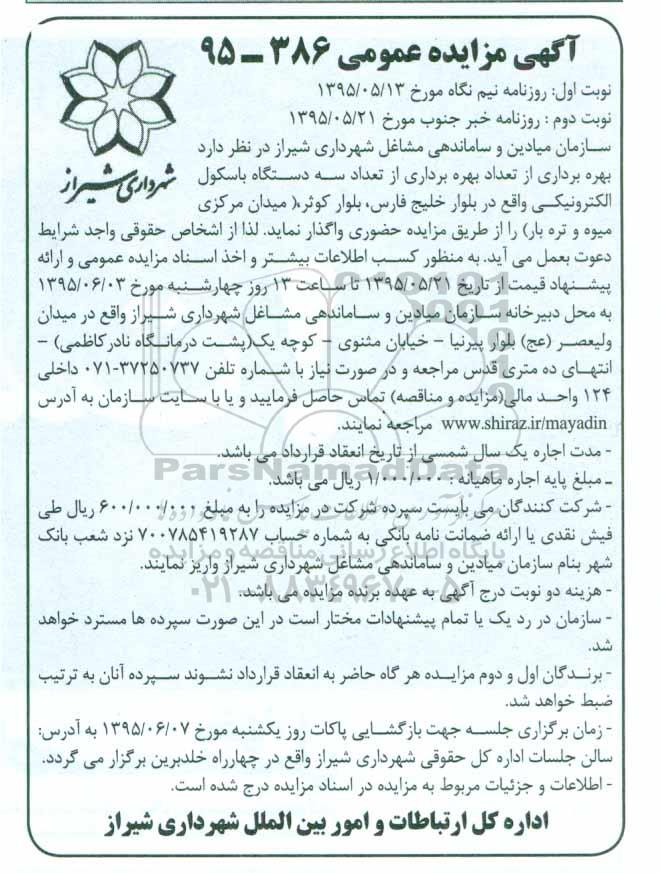 آگهی مزایده عمومی ۳۸۶ – ۹۵
شهرداری شیراز
نوبت اول: روزنامه نیم نگاه مورخ ۱۳۹۵/۰۵/۱۳
نوبت دوم : روزنامه خبر جنوب مورخ ۱۳۹۵/۰۵/۲۱
سازمان میادین و ساماندهی مشاغل شهرداری شیراز در نظر دارد
بهره برداری از تعداد بهره برداری از تعداد سه دستگاه باسکول
الکترونیکی واقع در بلوار خلیج فارس، بلوار کوثر،( میدان مرکزی
میوه و تره بار) را از طریق مزایده حضوری واگذار نماید. لذا از اشخاص حقوقی واجد شرایط
دعوت بعمل می آید. به منظور کسب اطلاعات بیشتر و اخذ اسناد مزایده عمومی و ارائه
پیشنهاد قیمت از تاریخ ۱۳۹۵/۰۵/۲۱ تا ساعت ۱۳ روز چهارشنبه مورخ ۱۳۹۵/۰۶/۰۳
به محل دبیرخانه سازمان میادین و ساماندهی مشاغل شهرداری شیراز واقع در میدان
ولیعصر (عج) بلوار پیرنیا – خیابان مثنوی – کوچه یک(پشت درمانگاه نادرکاظمی) –
انتهای ده متری قدس مراجعه و در صورت نیاز با شماره تلفن ۳۷۲۵۰۷۳۷-۰۷۱ داخلی
۱۲۴ واحد مالی(مزایده و مناقصه) تماس حاصل فرمایید و یا با سایت سازمان به آدرس
www.shiraz.ir/mayadin مراجعه نمایند.
- مدت اجاره یک سال شمسی از تاریخ انعقاد قرارداد می باشد.
ParsNamadData
ـ مبلغ پایه اجاره ماهیانه : ۱/۰۰۰/۰۰۰ ریال می باشد.
- شرکت کنندگان می بایست سپرده شرکت در مزایده را به مبلغ ۶۰۰/۰۰۰/۰۰۰ ریال طی
فیش نقدی یا ارائه ضمانت نامه بانکی به شماره حساب ۷۰۰۷۸۵۴۱۹۲۸۷ نزد شعب بانک
پایگاه اطلاع رسانی مناقصه و مزایده
شهر بنام سازمان میادین و ساماندهی مشاغل شهرداری شیراز واریز نمایند.
- هزینه دو نوبت درج آگهی به عهده برنده مزایده می باشد.
۰۲۱-۸۸۳۴۹۶۷۰-۵
- سازمان در رد یک یا تمام پیشنهادات مختار است در این صورت سپرده ها مسترد خواهد
شد.
- برندگان اول و دوم مزایده هر گاه حاضر به انعقاد قرارداد نشوند سپرده آنان به ترتیب
ضبط خواهد شد.
- زمان برگزاری جلسه جهت بازگشایی پاکات روز یکشنبه مورخ ۱۳۹۵/۰۶/۰۷ به آدرس:
سالن جلسات اداره کل حقوقی شهرداری شیراز واقع در چهارراه خلدبرین برگزار می گردد.
- اطلاعات و جزئیات مربوط به مزایده در اسناد مزایده درج شده است.
اداره کل ارتباطات و امور بین الملل شهرداری شیراز